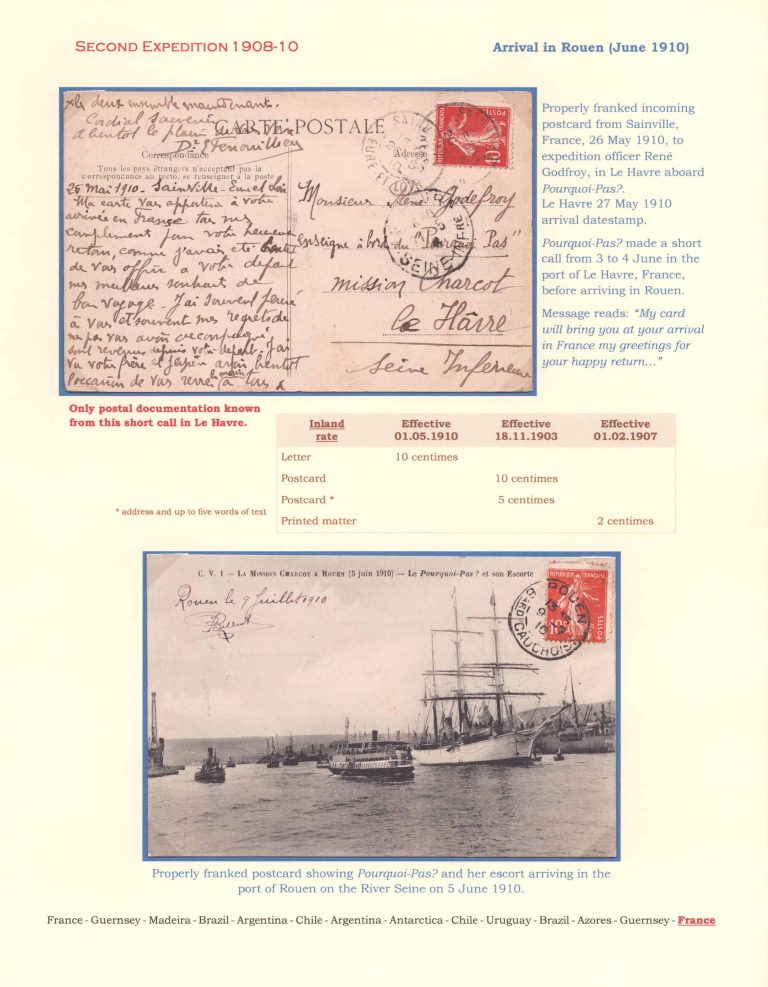 SECOND EXPEDITION 1908-10
Arrival in Rouen (June 1910)
les deux ensemble maintenant.
Cordial souvenir
a bientot le plaisir de vous
CARTE POSTALE
Correspondance
Adresse
Tous les pays étrangers n'acceptent pas la
correspondance au recto, se renseigner à la poste
26 Mai 1910. Sainville - Eure et Loir
Ma carte vous apportera à votre
arrivée en France tous mes
compliments pour votre heureux
retour, comme j'avais été
de vous offrir a votre départ
mes meilleurs souhaits de
bon voyage. J'ai souvent pensé
à vous et souvent mes regrets de
ne pas vous avoir accompagné
sont revenus depuis votre départ. J'ai
vu votre frère et j'espère avoir bientot
l'occasion de vous
Monsieur René Godefroy
enseigne à bord du "Pourquoi Pas"
mission Charcot
le Hâvre
Seine Inferieure
REPUBLIQUE FRANÇAISE
10
POSTES
SAINVILLE
EURE ET LOIR
SEINE INFRE
Properly franked incoming
postcard from Sainville,
France, 26 May 1910, to
expedition officer René
Godfroy, in Le Havre aboard
Pourquoi-Pas?.
Le Havre 27 May 1910
arrival datestamp.
Pourquoi-Pas? made a short
call from 3 to 4 June in the
port of Le Havre, France,
before arriving in Rouen.
Message reads: “My card
will bring you at your arrival
in France my greetings for
your happy return…”
Only postal documentation known
from this short call in Le Havre.
Inland rate Effective 01.05.1910 Effective 18.11.1903 Effective 01.02.1907
Letter 10 centimes
Postcard 10 centimes
Postcard * 5 centimes
Printed matter 2 centimes
* address and up to five words of text
C. V. 1 — LA MISSION CHARCOT A ROUEN (5 juin 1910) — Le Pourquoi-Pas ? et son Escorte
Rouen le 9 Juillet 1910
REPUBLIQUE FRANÇAISE
10
POSTES
ROUEN
BARD CAUCHOISE
Properly franked postcard showing Pourquoi-Pas? and her escort arriving in the
port of Rouen on the River Seine on 5 June 1910.
France - Guernsey - Madeira - Brazil - Argentina - Chile - Argentina - Antarctica - Chile - Uruguay - Brazil - Azores - Guernsey - France